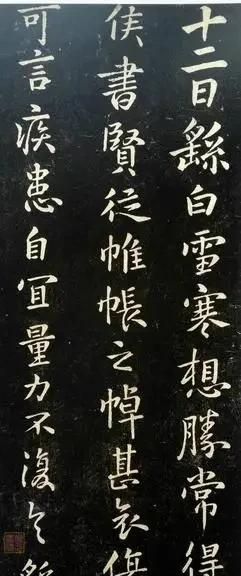 十二日繇白雪寒想勝常得
侯書賢從帷帳之悼甚哀傷
可言疾患自宜量力不復具繇